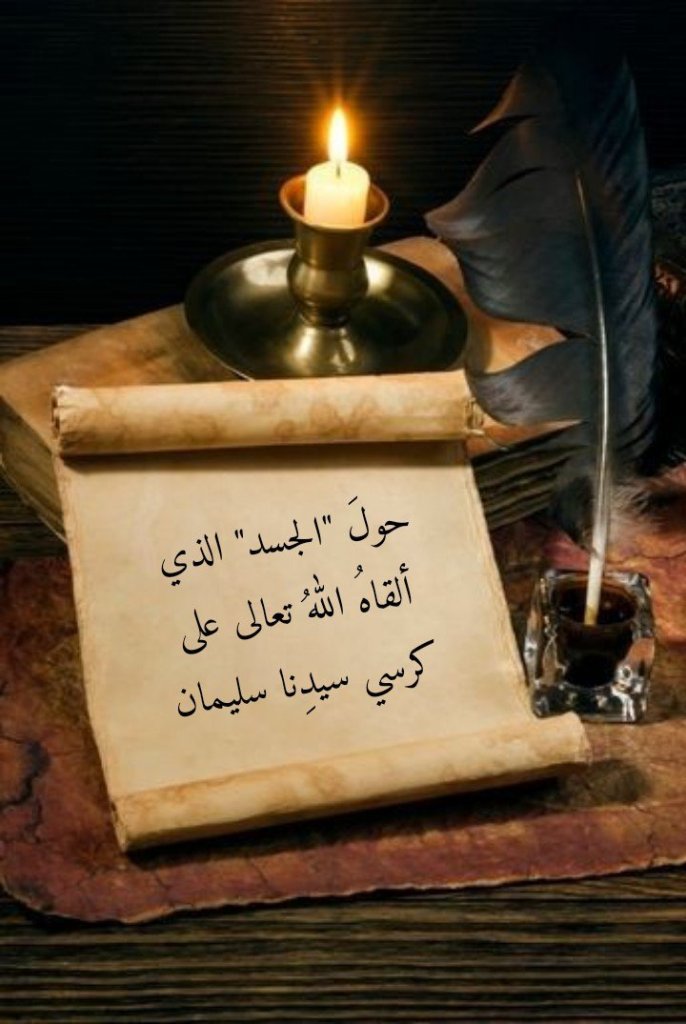 حولَ "الجسد" الذي
ألقاهُ اللهُ تعالى على
كرسي سيدِنا سليمان